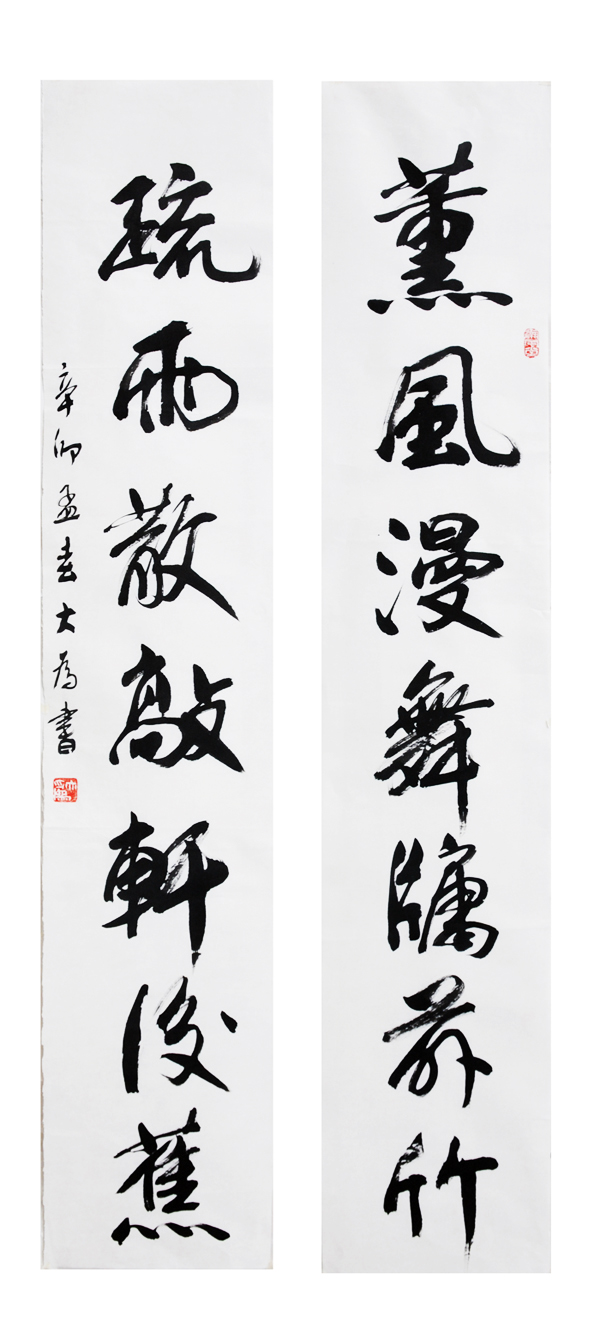 薰風漫舞牖前竹
疏雨散敲軒後蕉
辛卯孟春大為書